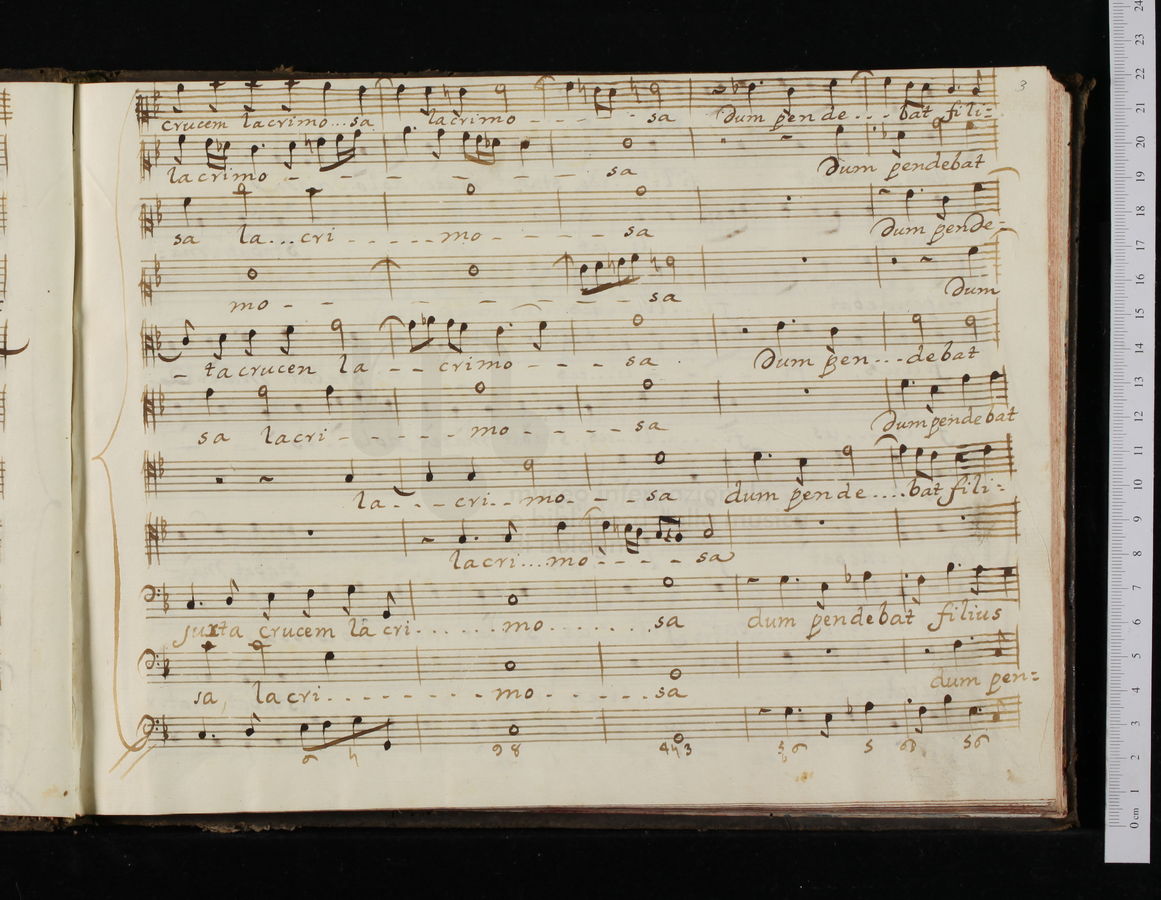 3
crucem lacrimo...sa lacrimo - - - - sa Dum pende...- bat fili=
lacrimo - - - - - - - - - sa Dum pendebat
sa la...cri - - - - - mo - - - - - sa Dum pende=
mo - - - - - - - sa Dum
- ta crucen la - - crimo - - - sa Dum pen - - - debat
sa lacri - - - - - - mo - - - - - sa Dum pendebat
la - - - cri - - mo - - sa dum pende....bat fili=
lacri...mo - - - - sa
juxta crucem la cri......mo.......sa dum pendebat filius
sa, lacri........mo.....sa dum pen=
6 ♮ 9 8 4 ♮ 3 5 6 5 6 5 6